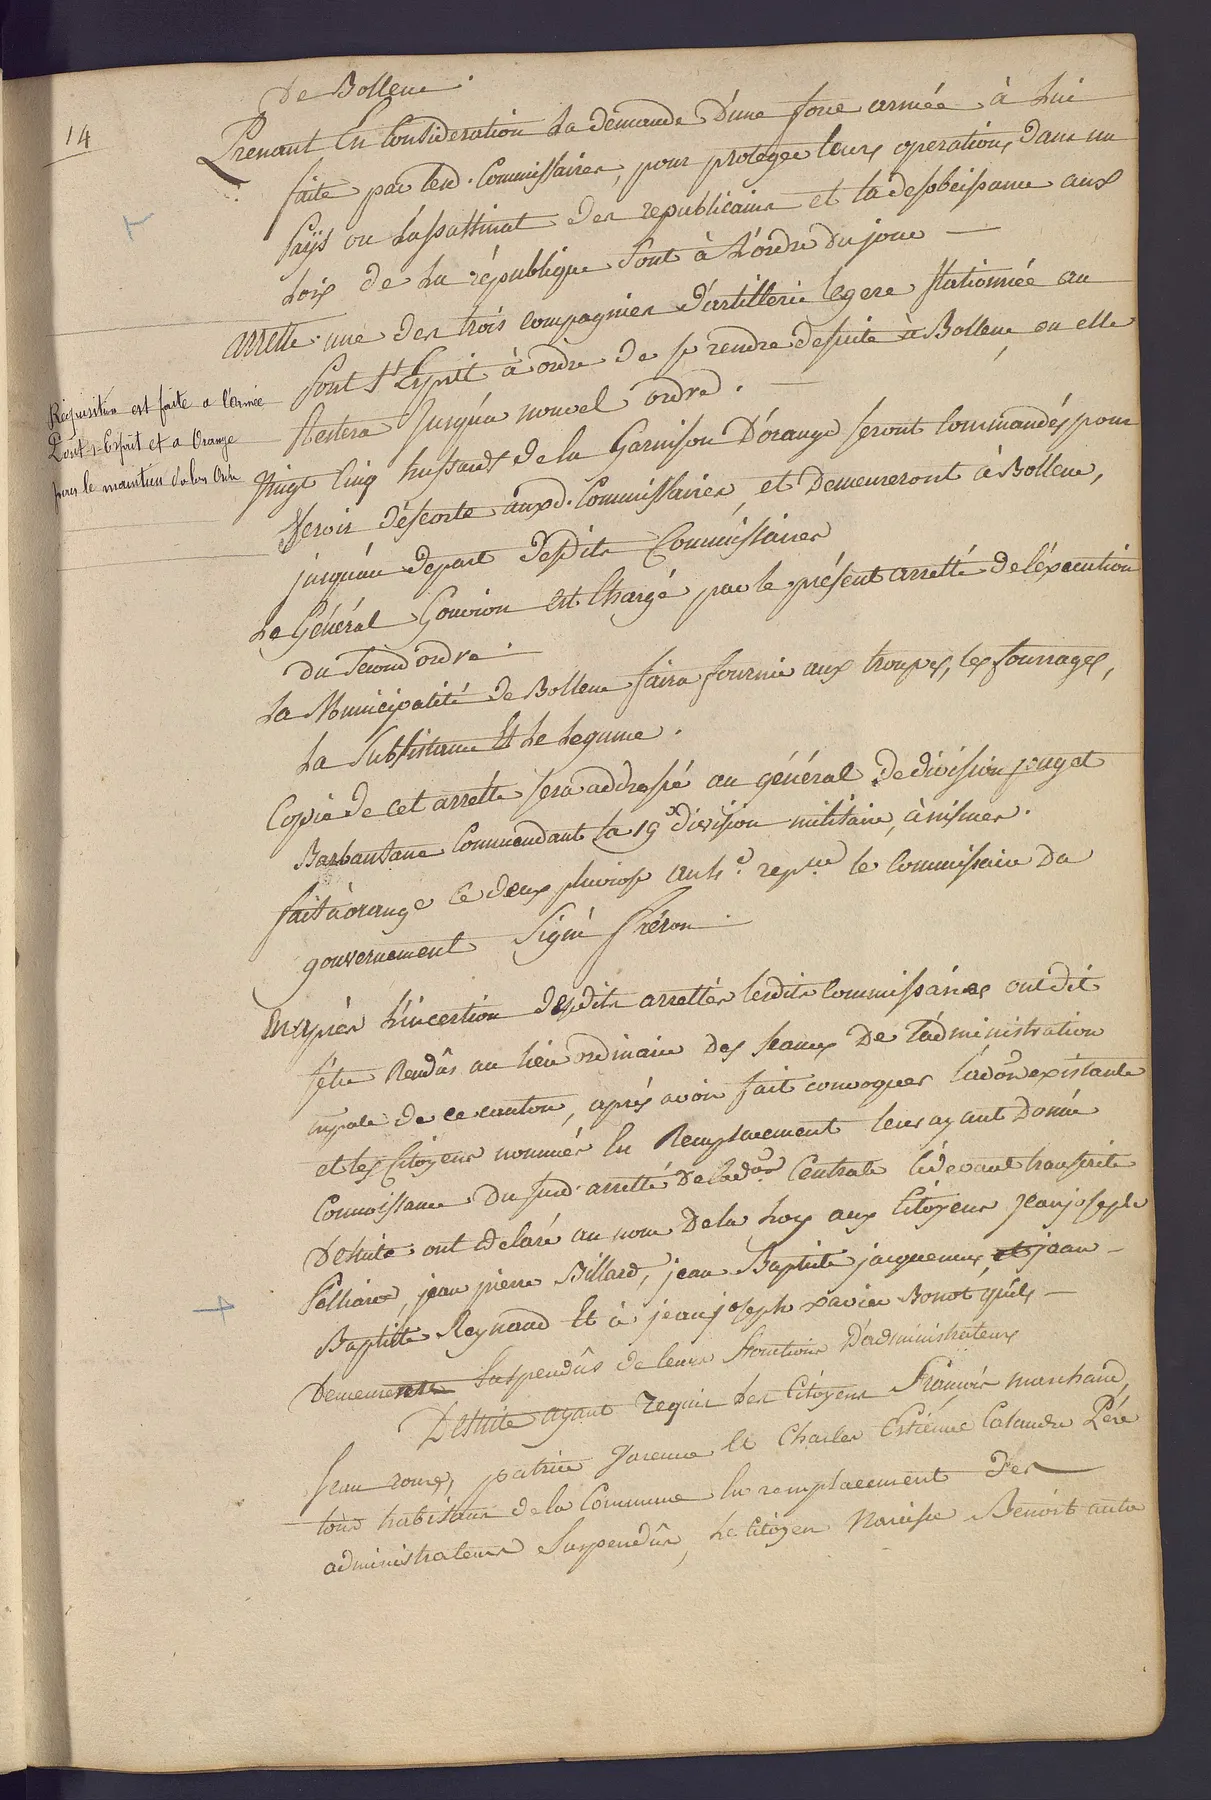 14
de Bollene.
Prenant En Consideration la demande D'une force armée à lui
faite par lesd. Commissaires, pour proteger leurs operations, dans un
Paÿs ou Lassassinat des republicains et la desobeissance aux
Loix de la république sont à L'ordre du jour —
arrette. une des trois compagnies d'artillerie legere stationnée au
Pont St Esprit à ordre de se rendre desuite à Bollene, ou elle
Restera Jusqu'a nouvel ordre. —
Requisition est faite a l'armée
Pont St Esprit et a Orange
pour le maintien de lor
Vingt Cinq hussards de la Garnison D'orange seront Commandés pour
servir d'éscorte auxd. Commissaires, et Demeureront à Bollene,
jusqu'au depart desdits Commissaires
Le Général Gouvion est Chargé par le présent arretté de l'éxecution
du second ordre. —
La Municipalité de Bollene faira fournir aux troupes, les fourrages,
La Subsistance Et Le Legume.
Copie de cet arretté sera addressé au général de division puget
Barbantane Commendant la 19e division militaire, à nismes.
fait à orange le deux pluviose an 4e. repque le Commissaire Du
gouvernement Signé fréron.
En après L'incertion desdits arrettés lesdits Commissaires ont dit
s'etre Rendûs au lieu ordinaire des seances De l'administration
mpale de ce canton, après avoir fait convoquer l'adon existante
et les Citoyens nommés En Remplacement leur ayant Donné
Connoissance Du susd. arretté De l'adon Centrale Cidevant transcrite
Desuite ont declaré au nom De la Loy aux Citoyens jean joseph
Pelliard, jean pierre Billard, jean Baptiste jacquemus, et jean —
Baptiste Reynaud Et à jean joseph xavier Bonot qu'ils —
Demeurent Suspendûs de leurs fonctions D'administrateurs
Desuite ayant requis des Citoyens François marchand,
Jean roux, patrice Varenne et Charles Estienne Calandre Père
tous habitans de la Commune En remplacement Des
administrateurs Suspendûs, le Citoyen Narcisse Benoit